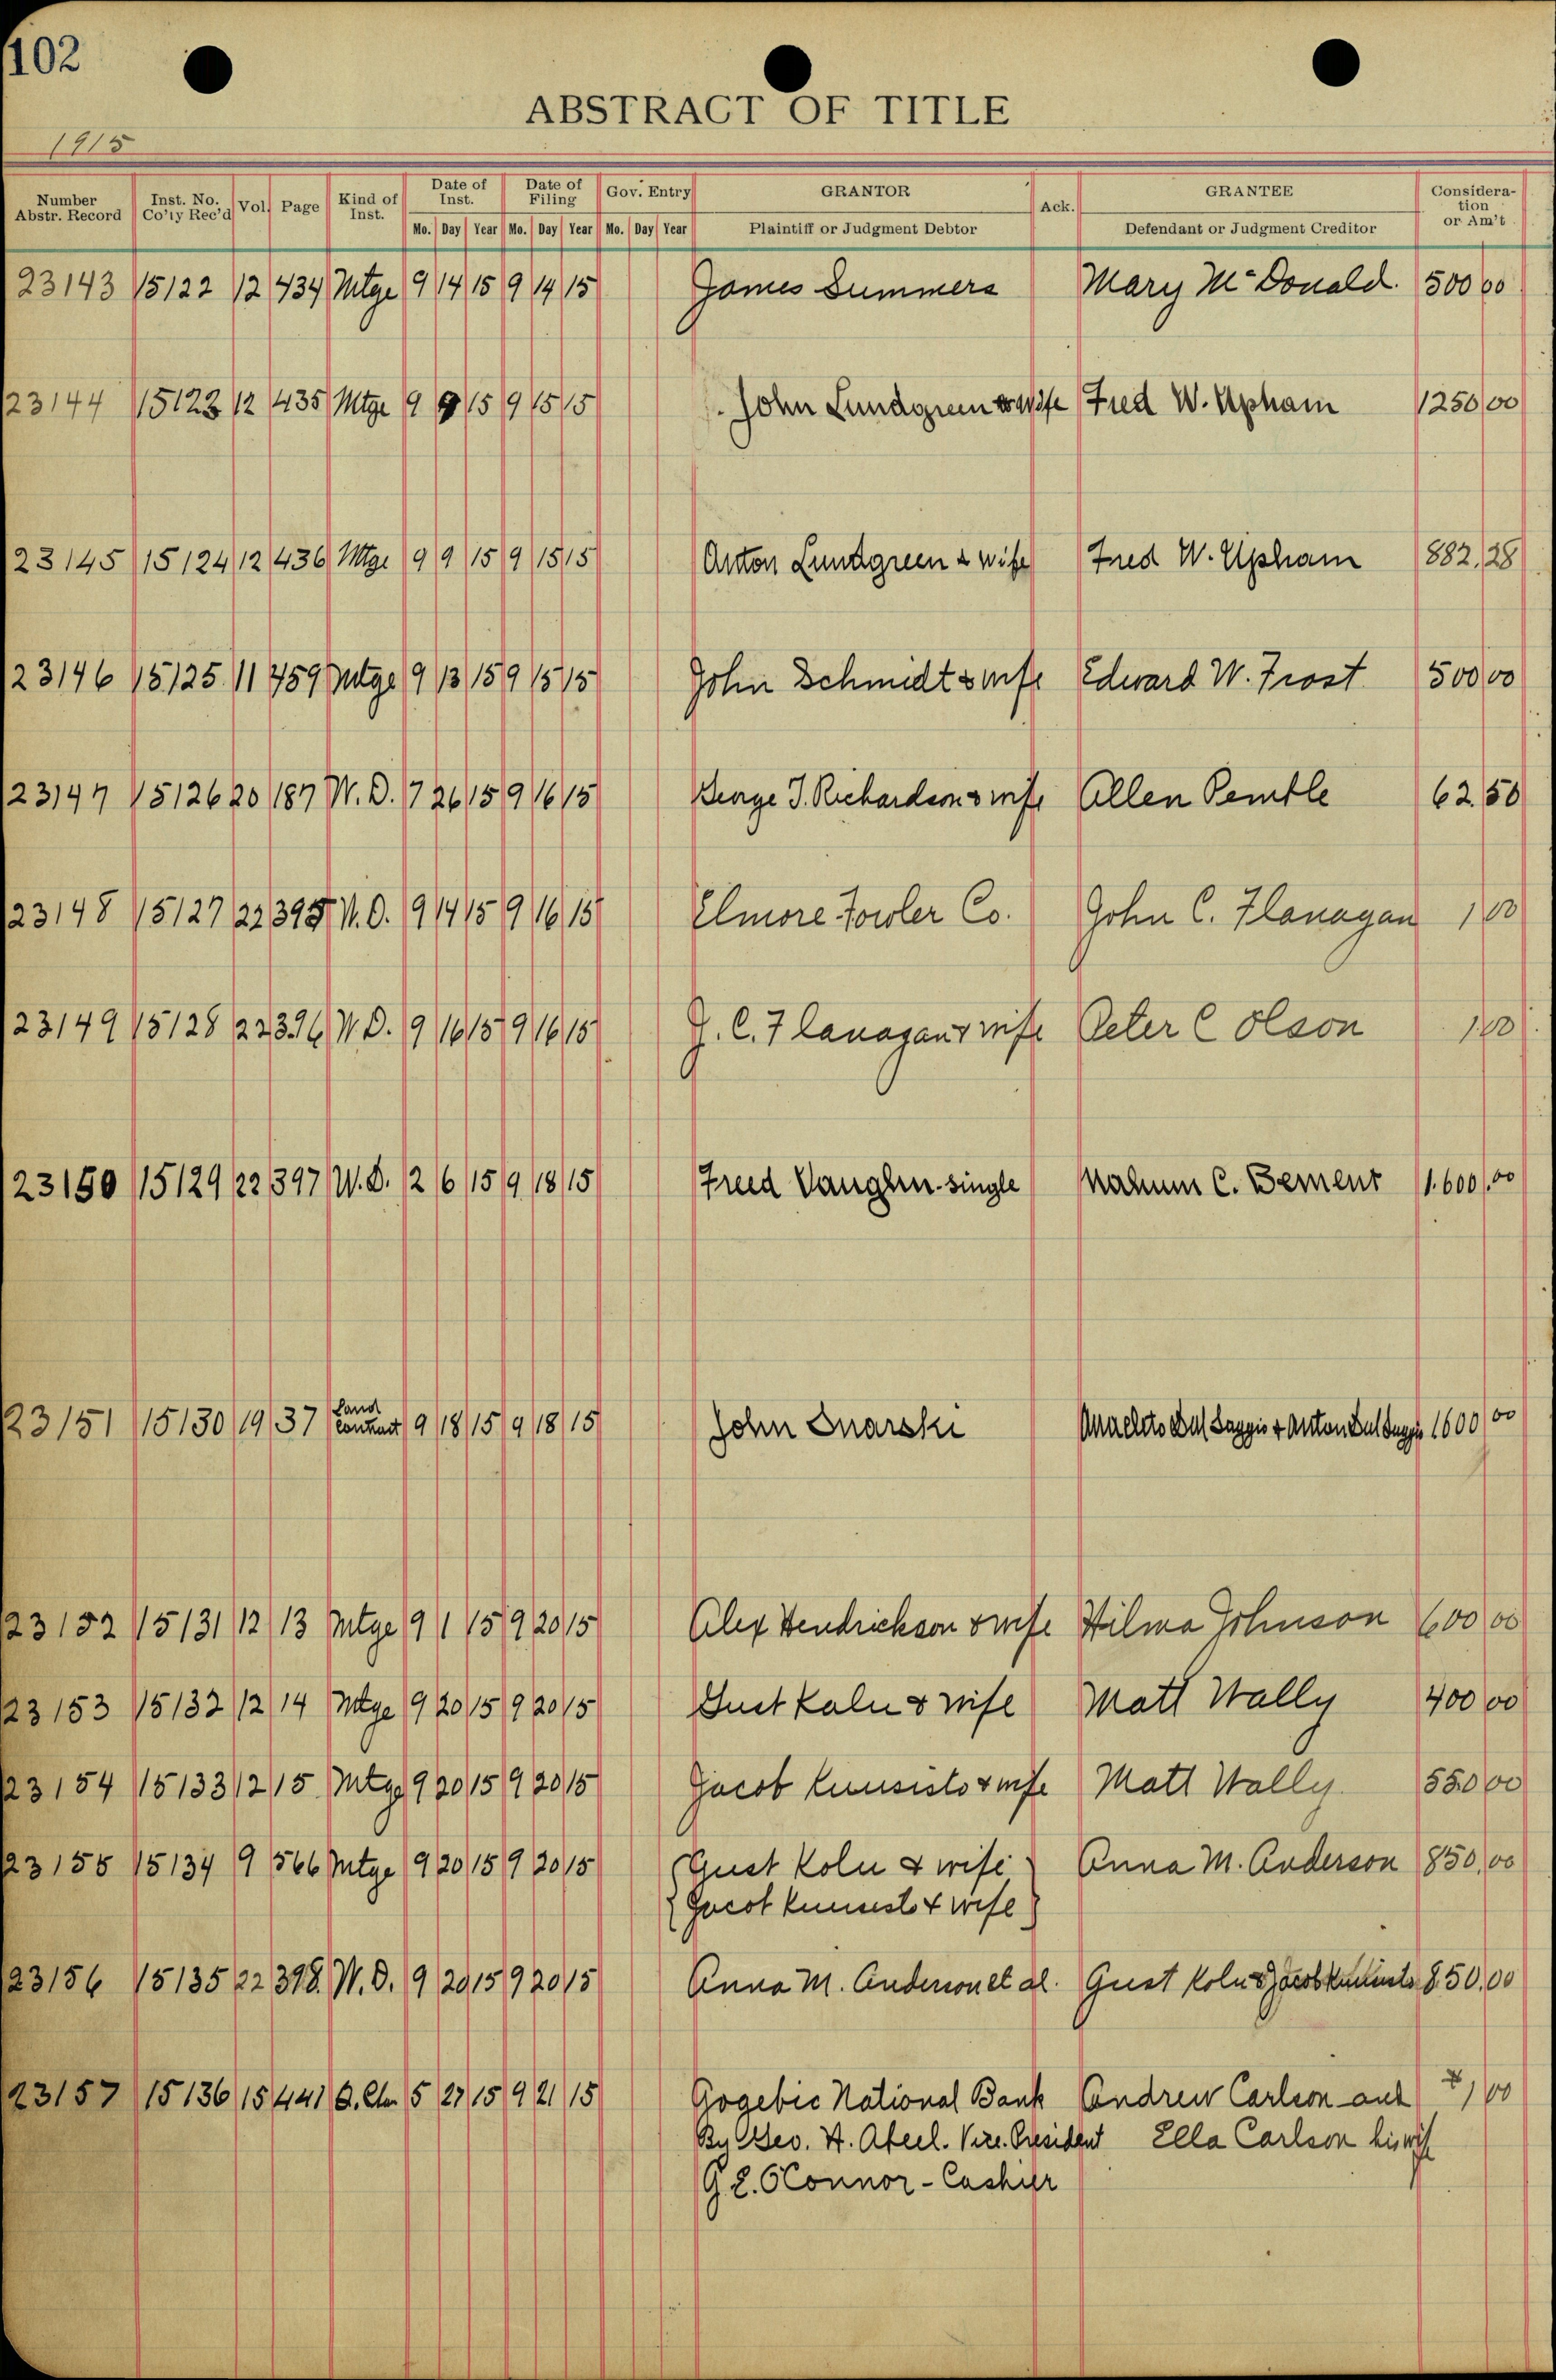 102
ABSTRACT OF TITLE
1915
Number Abstr. Record Inst. No. Co'ty Rec'd Vol. Page Kind of Inst. Date of Inst. Date of Filing Gov. Entry GRANTOR Ack. GRANTEE Consideration or Am't
Mo. Day Year Mo. Day Year Mo. Day Year Plaintiff or Judgment Debtor Defendant or Judgment Creditor
23143 15122 12 434 Mtge 9 14 15 9 14 15 James Summers Mary McDonald. 500 00
23144 15123 12 435 Mtge 9 9 15 9 15 15 John Lundgreen & wife Fred W. Upham 1250 00
23145 15124 12 436 Mtge 9 9 15 9 15 15 Anton Lundgreen & wife Fred W. Upham 882.28
23146 15125 11 459 Mtge 9 13 15 9 15 15 John Schmidt & wife Edward W. Frost 500 00
23147 15126 20 187 W.D. 7 26 15 9 16 15 George T. Richardson & wife Allen Pemble 62.50
23148 15127 22 395 W.D. 9 14 15 9 16 15 Elmore Fowler Co. John C. Flanagan 1 00
23149 15128 22 396 W.D. 9 16 15 9 16 15 J. C. Flanagan & wife Peter C Olson 1 00
23150 15129 22 397 W.D. 2 6 15 9 18 15 Freed Vaughn-single Nahum C. Bement 1.600.00
23151 15130 19 37 Land Contract 9 18 15 9 18 15 John Snarski & Anton 1600 00
23152 15131 12 13 Mtge 9 1 15 9 20 15 Alex Hendrickson & wife Hilma Johnson 600 00
23153 15132 12 14 Mtge 9 20 15 9 20 15 Gust Kaln & wife Matt Wally 400 00
23154 15133 12 15 Mtge 9 20 15 9 20 15 Jacob Kuusisto & wife Matt Wally. 550 00
23155 15134 9 566 Mtge 9 20 15 9 20 15 Gust Koln & wife Anna M. Anderson 850.00
Jacob Kuusisto & wife
23156 15135 22 398. W.D. 9 20 15 9 20 15 Anna M. Anderson et al. Gust Koln & Jacob 850.00
23157 15136 15 441 Q.Clm 5 27 15 9 21 15 Gogebic National Bank Andrew Carlson and 1 00
By Geo. H. Abeel. Vice. President Ella Carlson his wife
G. E. OConnor - Cashier